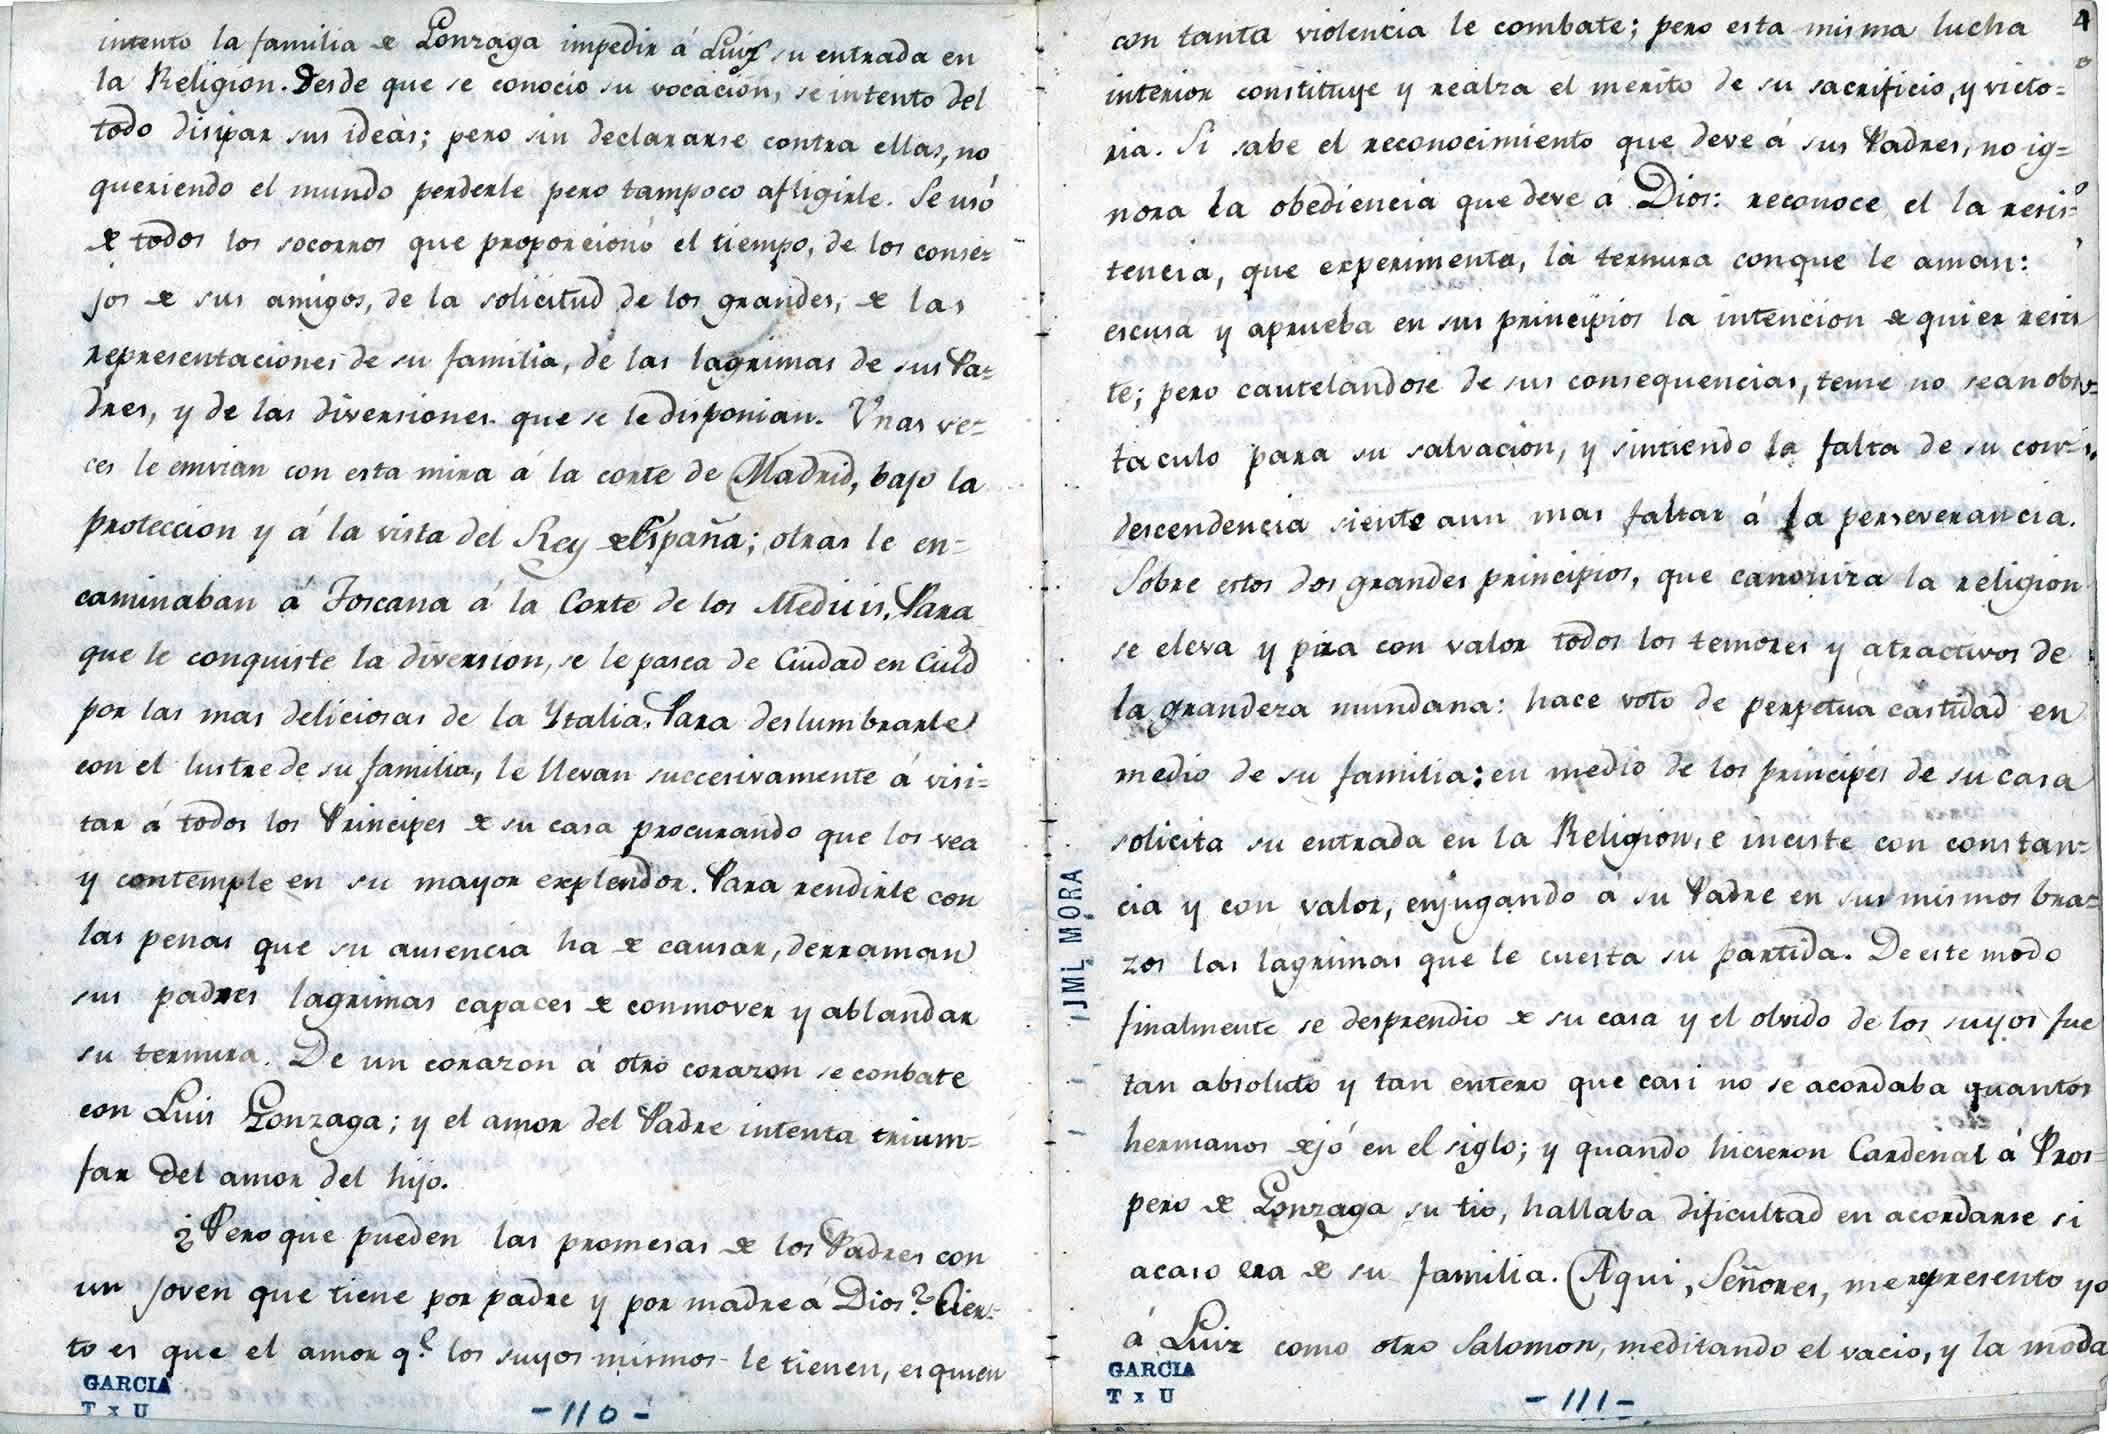 intento la familia de Gonzaga impedir á Luis su entrada en
la Religion. Desde que se conocio su vocacion, se intento del
todo disipar sus ideas; pero sin declararse contra ellas, no
queriendo el mundo perderle pero tampoco afligirle. Se usó
de todos los socorros que proporcionó el tiempo, de los conse=
jos de sus amigos, de la solicitud de los grandes, de las
representaciones de su familia, de las lagrimas de sus Pa=
dres, y de las diversiones que se le disponian. Unas ve=
ces le envian con esta mira á la corte de Madrid, bajo la
proteccion y á la vista del Rey de España; otras le en=
caminaban á Toscana á la Corte de los Medicis. Para
que le conquiste la diversion, se le pasea de Ciudad en Ciud
por las mas deliciosas de la Ytalia. Para deslumbrarle
con el lustre de su familia, le llevan succesivamente á visi=
tar á todos los Principes de su casa procurando que los vea
y contemple en su mayor explendor. Para rendirle con
las penas que su ausencia ha de causar, derraman
sus padres lagrimas capaces de conmover y ablandar
su ternura. De un corazon á otro corazon se conbate
con Luis Gonzaga; y el amor del Padre intenta trium=
far del amor del hijo.
¿Pero que pueden las promesas de los Padres con
un joven que tiene por padre y por madre á Dios? Cier=
to es que el amor q.e los suyos mismos le tienen, es quien
GARCIA
T x U
-110-
4
con tanta violencia le combate; pero esta misma lucha
interior constituye y realza el merito de su sacrificio, y victo=
ria. Si sabe el reconocimiento que deve á sus Padres, no ig=
nora la obediencia que deve á Dios: reconoce el la resis=
tencia, que experimenta, la ternura conque le aman:
escusa y aprueba en sus principios la intencion de quien resis
te; pero cautelandose de sus consequencias, teme no sean obs=
taculo para su salvacion, y sintiendo la falta de su con=
descendencia siente aun mas faltar á la perseverancia.
Sobre estos dos grandes principios, que canoniza la religion
se eleva y pisa con valor todos los temores y atractivos de
la grandeza mundana: hace voto de perpetua castidad en
medio de su familia: en medio de los principes de su casa
solicita su entrada en la Religion, e inciste con constan=
cia y con valor, enjugando á su Padre en sus mismos bra=
zos las lagrimas que le cuesta su partida. De este modo
finalmente se desprendio de su casa y el olvido de los suyos fue
tan absoluto y tan entero que casi no se acordaba quantos
hermanos dejó en el siglo; y quando hicieron Cardenal á Pros=
pero de Gonzaga su tio, hallaba dificultad en acordarse si
acaso era de su familia. Aqui, Señores, me represento yo
á Luis como otro Salomon, meditando el vacio, y la moda
GARCIA
T x U
-111-
JML MORA